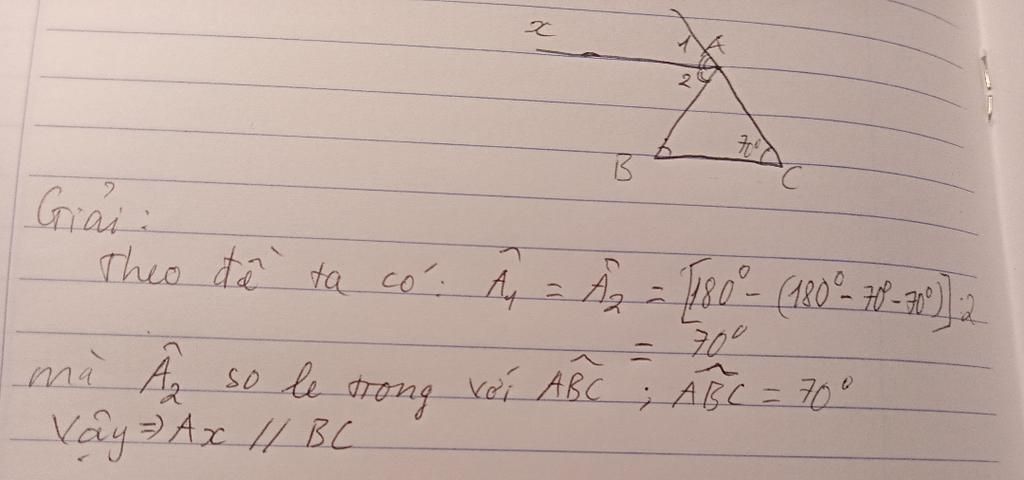 x
1 A
2
70°
B
C
Giải:
Theo đề ta có: Â₁ = Â₂ = [180° - (180° - 70° - 70°)]:2
= 70°
mà Â₂ so le trong với \widehat{ABC} ; \widehat{ABC} = 70°
Vậy ⇒ Ax // BC